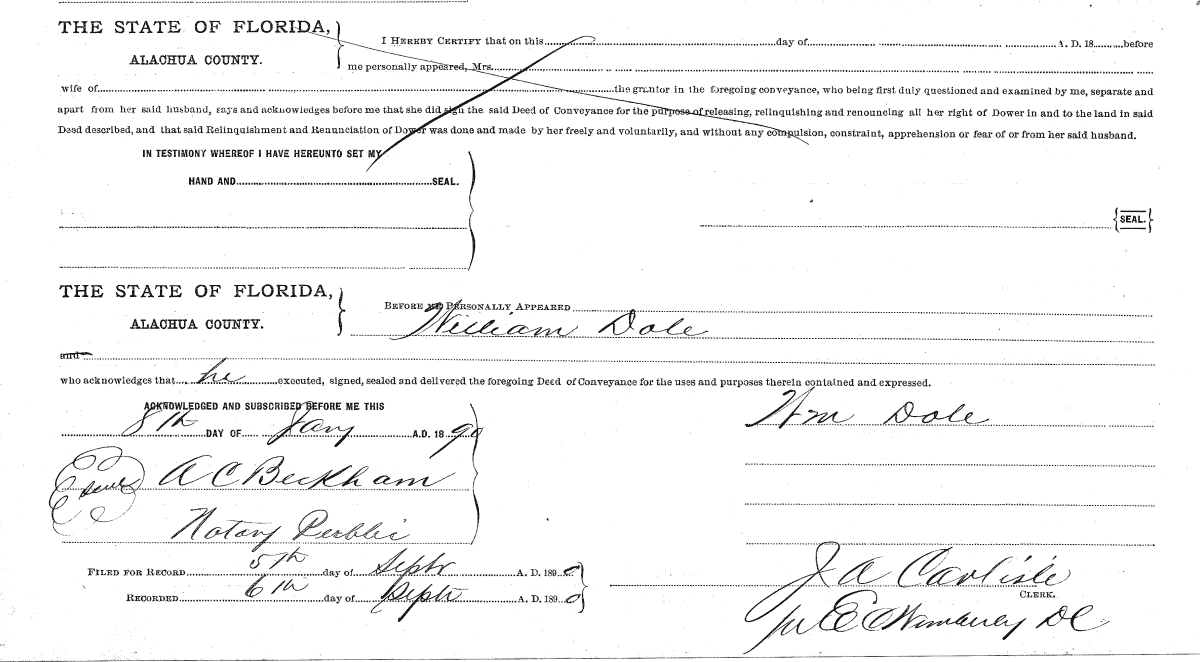 THE STATE OF FLORIDA,
ALACHUA COUNTY.
I HEREBY CERTIFY that on this day of A. D. 18 before
me personally appeared, Mrs.
wife of the grantor in the foregoing conveyance, who being first duly questioned and examined by me, separate and
apart from her said husband, says and acknowledges before me that she did sign the said Deed of Conveyance for the purpose of releasing, relinquishing and renouncing all her right of Dower in and to the land in said
Deed described, and that said Relinquishment and Renunciation of Dower was done and made by her freely and voluntarily, and without any compulsion, constraint, apprehension or fear of or from her said husband.
IN TESTIMONY WHEREOF I HAVE HEREUNTO SET MY
HAND AND SEAL.
SEAL.
THE STATE OF FLORIDA,
ALACHUA COUNTY.
BEFORE ME PERSONALLY APPEARED
William Dole
and
who acknowledges that he executed, signed, sealed and delivered the foregoing Deed of Conveyance for the uses and purposes therein contained and expressed.
ACKNOWLEDGED AND SUBSCRIBED BEFORE ME THIS
8th DAY OF Jany A.D. 1890
Wm Dole
Seal A C Beckham
Notary Public
FILED FOR RECORD 5th day of Septr A. D. 1890
RECORDED 6th day of Septr A. D. 1890
J A Carlisle
CLERK.
pr E C Wimberley DC